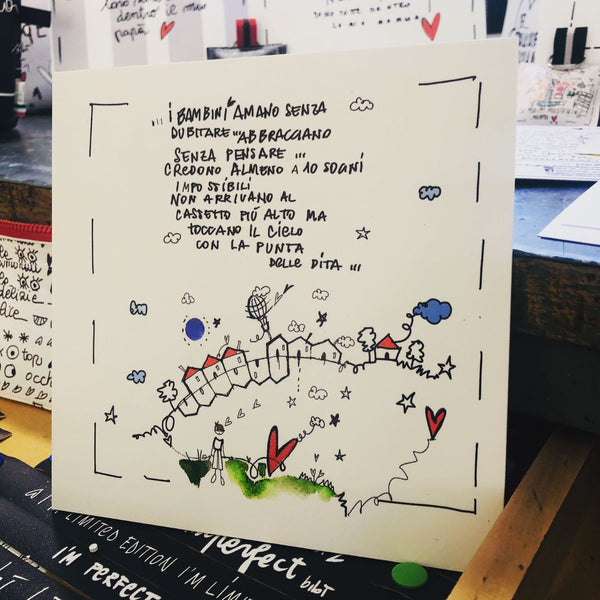 dentro le mie
papà
LA MIA MAMMA
... i BAMBINI AMANO SENZA
DUBITARE ... ABBRACCIANO
SENZA PENSARE ...
CREDONO ALMENO A 10 SOGNI
IMPOSSIBILI
NON ARRIVANO AL
CASSETTO PIÚ ALTO MA
TOCCANO IL CIELO
CON LA PUNTA
DELLE DITA ...
top
occh
LIMITED EDITION I'M LIMIT
perfect bibt
I'M PERFECT